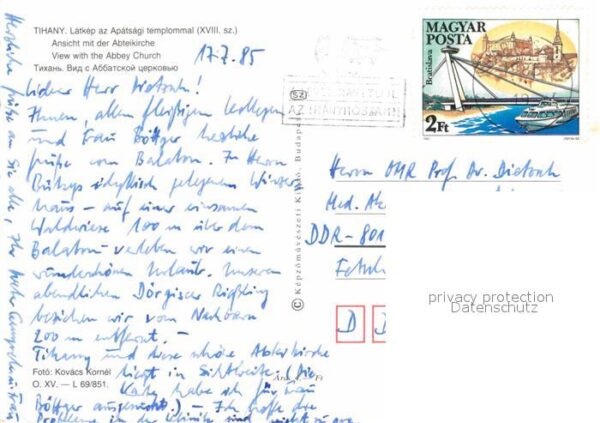 TIHANY. Látkép az Apátsági templommal (XVIII. sz.)
Ansicht mit der Abteikirche
View with the Abbey Church
Тихань. Вид с Аббатской церковью
17.7.85
Lieber Herr
Ihnen, allen fleißigen Kollegen
und Frau Böttger herzliche
Grüße vom Balaton. In Herrn
idyllisch gelegenem Winzer-
haus – auf einer einsamen
Waldwiese 100 m über dem
Balaton – verleben wir einen
wunderschönen Urlaub. Unseren
abendlichen Dörgicser Riesling
beziehen wir vom Nachbarn
200 m entfernt. –
Tihany und diese schöne Abteikirche
liegt in Sichtweite. (Die
Karte habe ich für Frau
Böttger ausgesucht) – Ich hoffe die
Probleme in der Klinik sind nicht zu
Herzliche Grüße an Sie alle, Ihr
Foto: Kovács Kornél
O. XV. — L 69/851.
© Képzőművészeti Kiadó, Budapest
SZ
AZ IRÁNYÍTÓSZÁM
MAGYAR
POSTA
Bratislava
2Ft
Herrn OMR Prof. Dr.
Med. Ak
DDR-801
D D
privacy protection
Datenschutz